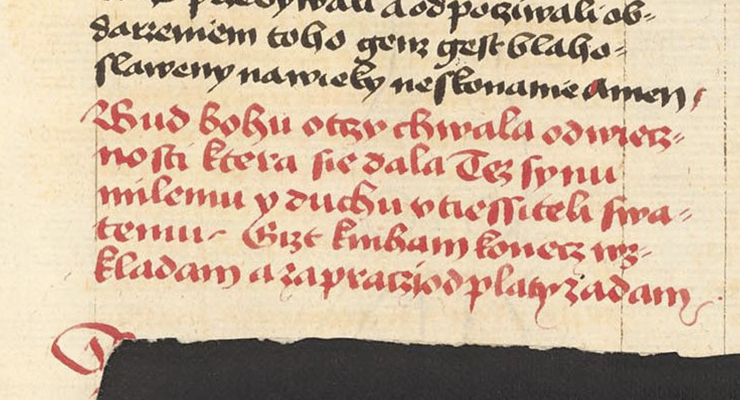 przebywali a odpocziwali ob-
darzeniem toho genz gest blaho-
slaweny nawieky neskonanie Amen
Bud bohu otczy chwala odwiecz-
nosti ktera sie dala Tez synu
milemu y duchu vtiessiteli swa-
temu Gizt kniham konecz wz-
kladam a zapraczi odplaty zadam